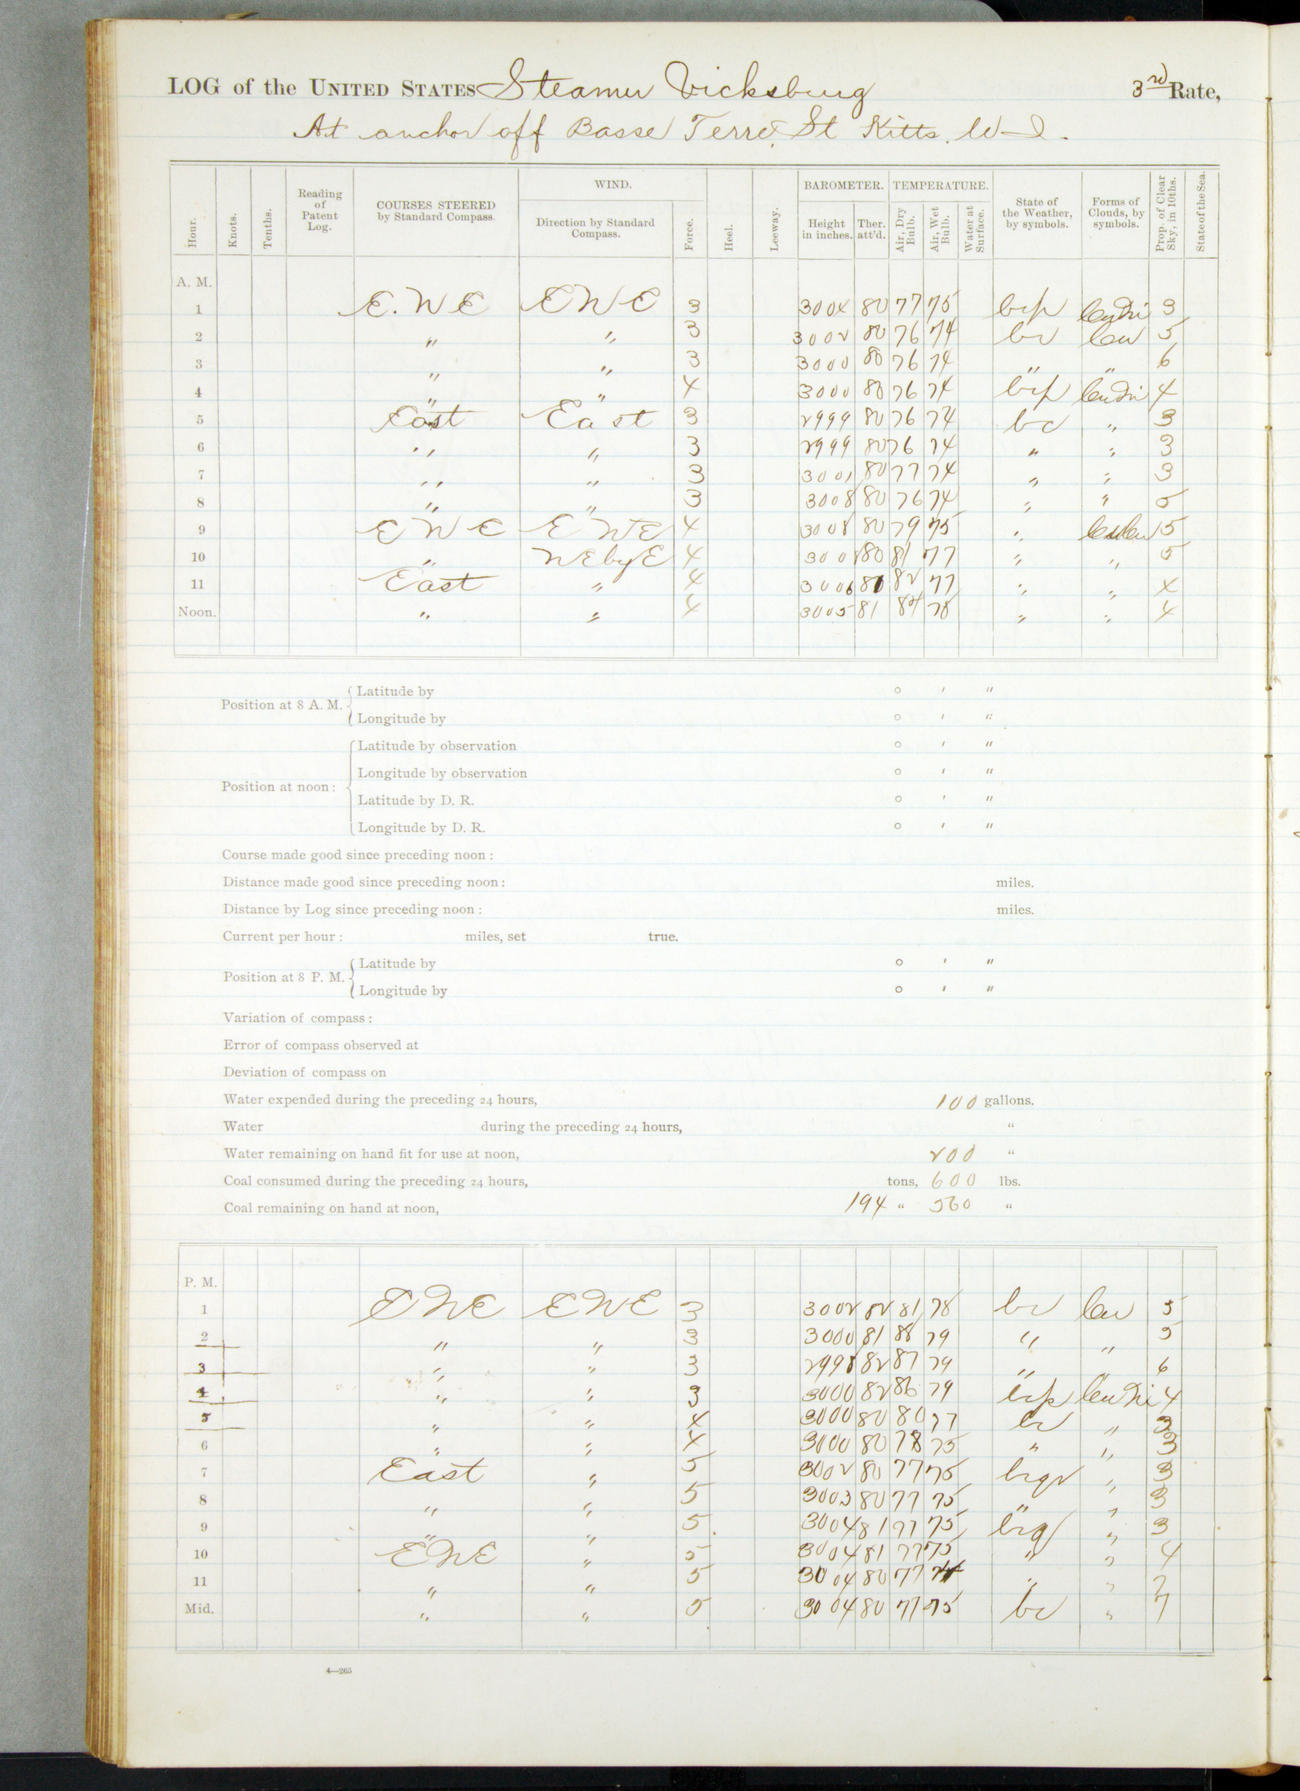 LOG of the UNITED STATES Steamer Vicksburg 3rd Rate,
At anchor off Basse Terre, St Kitts. W-I.
Hour. Knots. Tenths. Reading of Patent Log. COURSES STEERED by Standard Compass. WIND. Direction by Standard Compass. Force. Heel. Leeway. BAROMETER. Height in inches. Ther. att'd. TEMPERATURE. Air, Dry Bulb. Air, Wet Bulb. Water at Surface. State of the Weather, by symbols. Forms of Clouds, by symbols. Prop. of Clear Sky, in 10ths. State of the Sea.
A. M.
1 E.N E ENE 3 3004 80 77 75 bcp 3
2 " " 3 3002 80 76 74 bc cu 5
3 " " 3 3000 80 76 74 " " 6
4 " " 4 3000 80 76 74 bcp 4
5 East East 3 2999 80 76 74 bc " 3
6 " " 3 2999 80 76 74 " " 3
7 " " 3 3001 80 77 74 " " 3
8 " " 3 3008 80 76 74 " " 5
9 E N E E N E 4 3008 80 79 75 " 5
10 " NE by E 4 3008 80 81 77 " " 5
11 East " 4 3006 81 82 77 " " 4
Noon. " " 4 3005 81 84 78 " " 4
Position at 8 A. M. Latitude by ° ' "
Longitude by ° ' "
Position at noon: Latitude by observation ° ' "
Longitude by observation ° ' "
Latitude by D. R. ° ' "
Longitude by D. R. ° ' "
Course made good since preceding noon:
Distance made good since preceding noon: miles.
Distance by Log since preceding noon: miles.
Current per hour: miles, set true.
Position at 8 P. M. Latitude by ° ' "
Longitude by ° ' "
Variation of compass:
Error of compass observed at
Deviation of compass on
Water expended during the preceding 24 hours, 100 gallons.
Water during the preceding 24 hours, "
Water remaining on hand fit for use at noon, 200 "
Coal consumed during the preceding 24 hours, tons, 600 lbs.
Coal remaining on hand at noon, 194 " 560 "
P. M.
1 ENE ENE 3 3002 82 81 78 bc cu 5
2 " " 3 3000 81 88 79 " " 5
3 " " 3 2998 82 87 79 " " 6
4 " " 3 3000 82 86 79 bcp 4
5 " " 4 3000 80 80 77 bc " 3
6 " " 4 3000 80 78 75 " " 3
7 East " 5 3002 80 77 75 " 3
8 " " 5 3003 80 77 75 " " 3
9 " " 5 3004 81 77 75 " 3
10 ENE " 5 3004 81 77 75 " " 4
11 " " 5 3004 80 77 74 " " 7
Mid. " " 5 3004 80 77 75 bc " 7
4—265